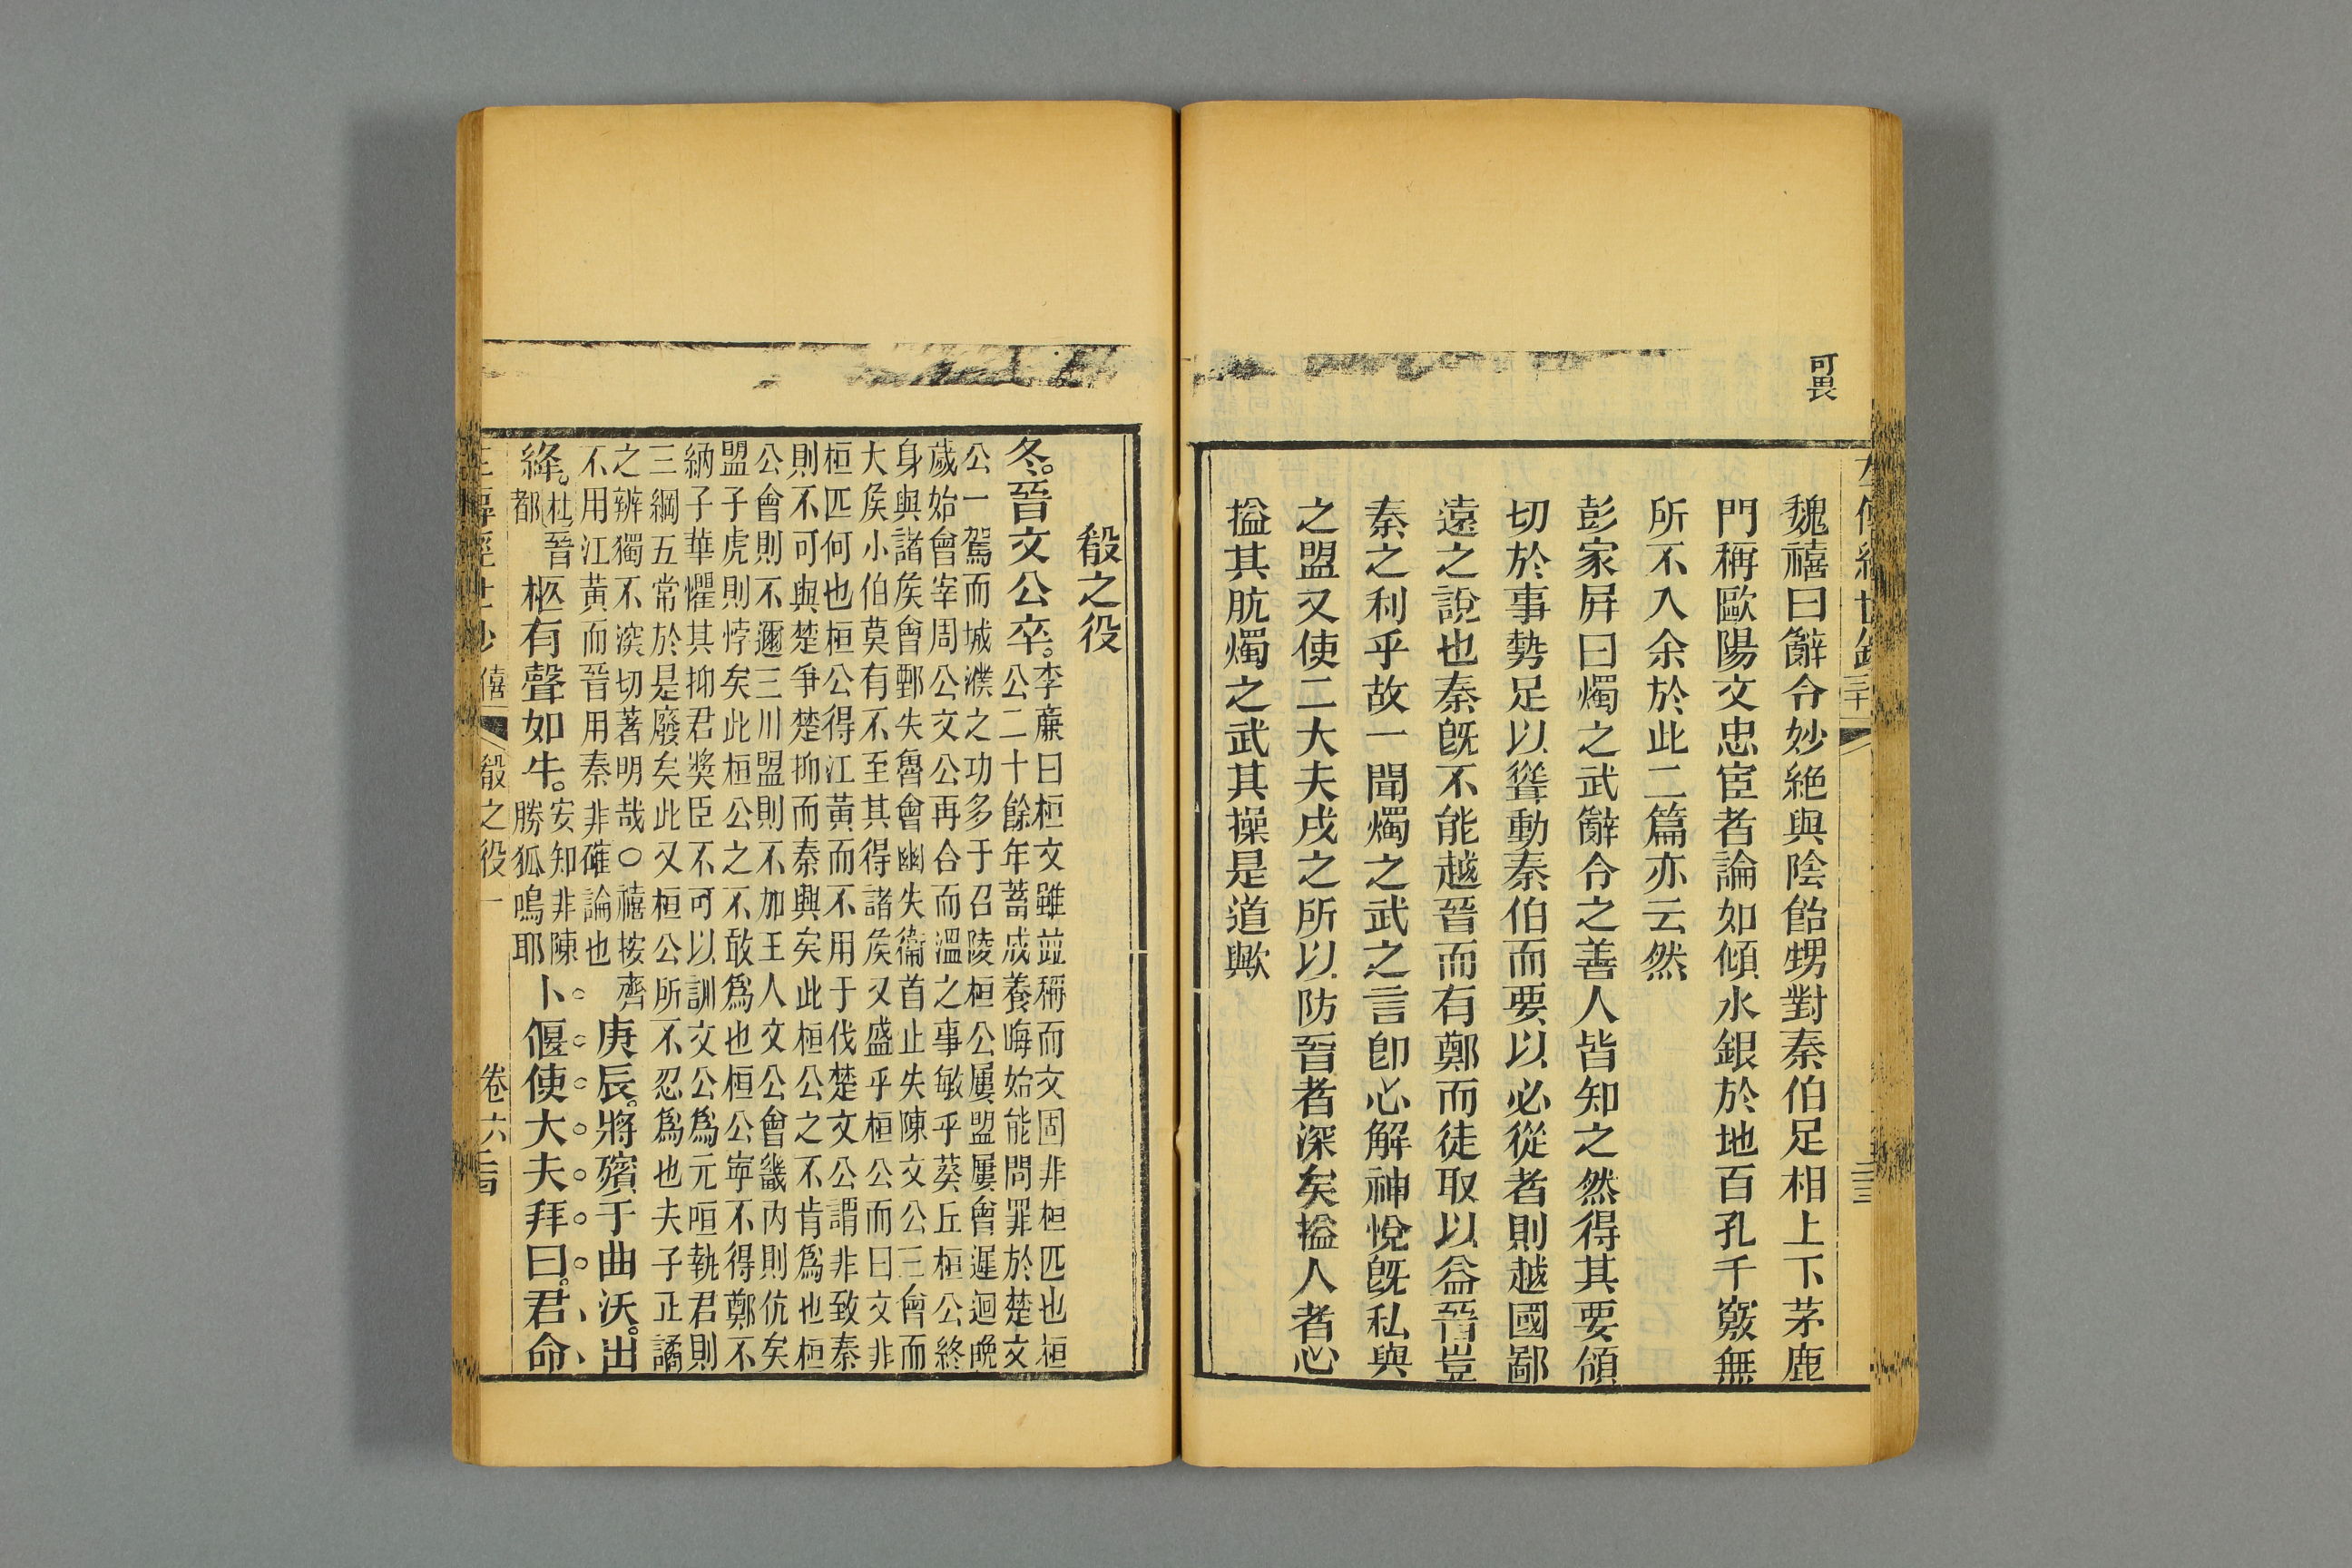 可畏
魏禧曰辭令妙絶與陰飴甥對秦伯足相上下茅鹿
門稱歐陽文忠宦者論如傾水銀於地百孔千竅無
所不入余於此二篇亦云然
彭家屏曰燭之武辭令之善人皆知之然得其要領
切於事勢足以聳動秦伯而要以必從者則越國鄙
遠之說也秦既不能越晉而有鄭而徒取以益晉豈
秦之利乎故一聞燭之武之言卽心解神悅旣私與
之盟又使二大夫戍之所以防晉者深矣搤人者必
搤其肮燭之武其操是道歟
殽之役
冬。晉文公卒。
李廉曰桓文雖竝稱而文固非桓匹也桓
公二十餘年蓄成養晦始能問罪於楚文
公一駕而城濮之功多于召陵桓公屢盟屢會遲迴晚
歲始會宰周公文公再合而溫之事敏乎葵丘桓公終
身與諸矦會鄄失魯會幽失衞首止失陳文公三會而
大矦小伯莫有不至其得諸矦又盛乎桓公而曰文非
桓匹何也桓公得江黃而不用于伐楚文公謂非致秦
則不可與楚爭楚抑而秦興矣此桓公之不肯爲也桓
公會則不邇三川盟則不加王人文公會畿內則伉矣
盟子虎則悖矣此桓公之不敢爲也桓公寧不得鄭不
納子華懼其抑君獎臣不可以訓文公爲元咺執君則
三綱五常於是廢矣此又桓公所不忍爲也夫子正譎
之辨獨不深切著明哉○禧按齊
不用江黃而晉用秦非確論也
庚辰。將殯于曲沃。出
絳。
杜晉
都
柩有聲如牛。
安知非陳
勝狐鳴耶
卜偃使大夫拜曰。君命
僖 殽之役一 卷六